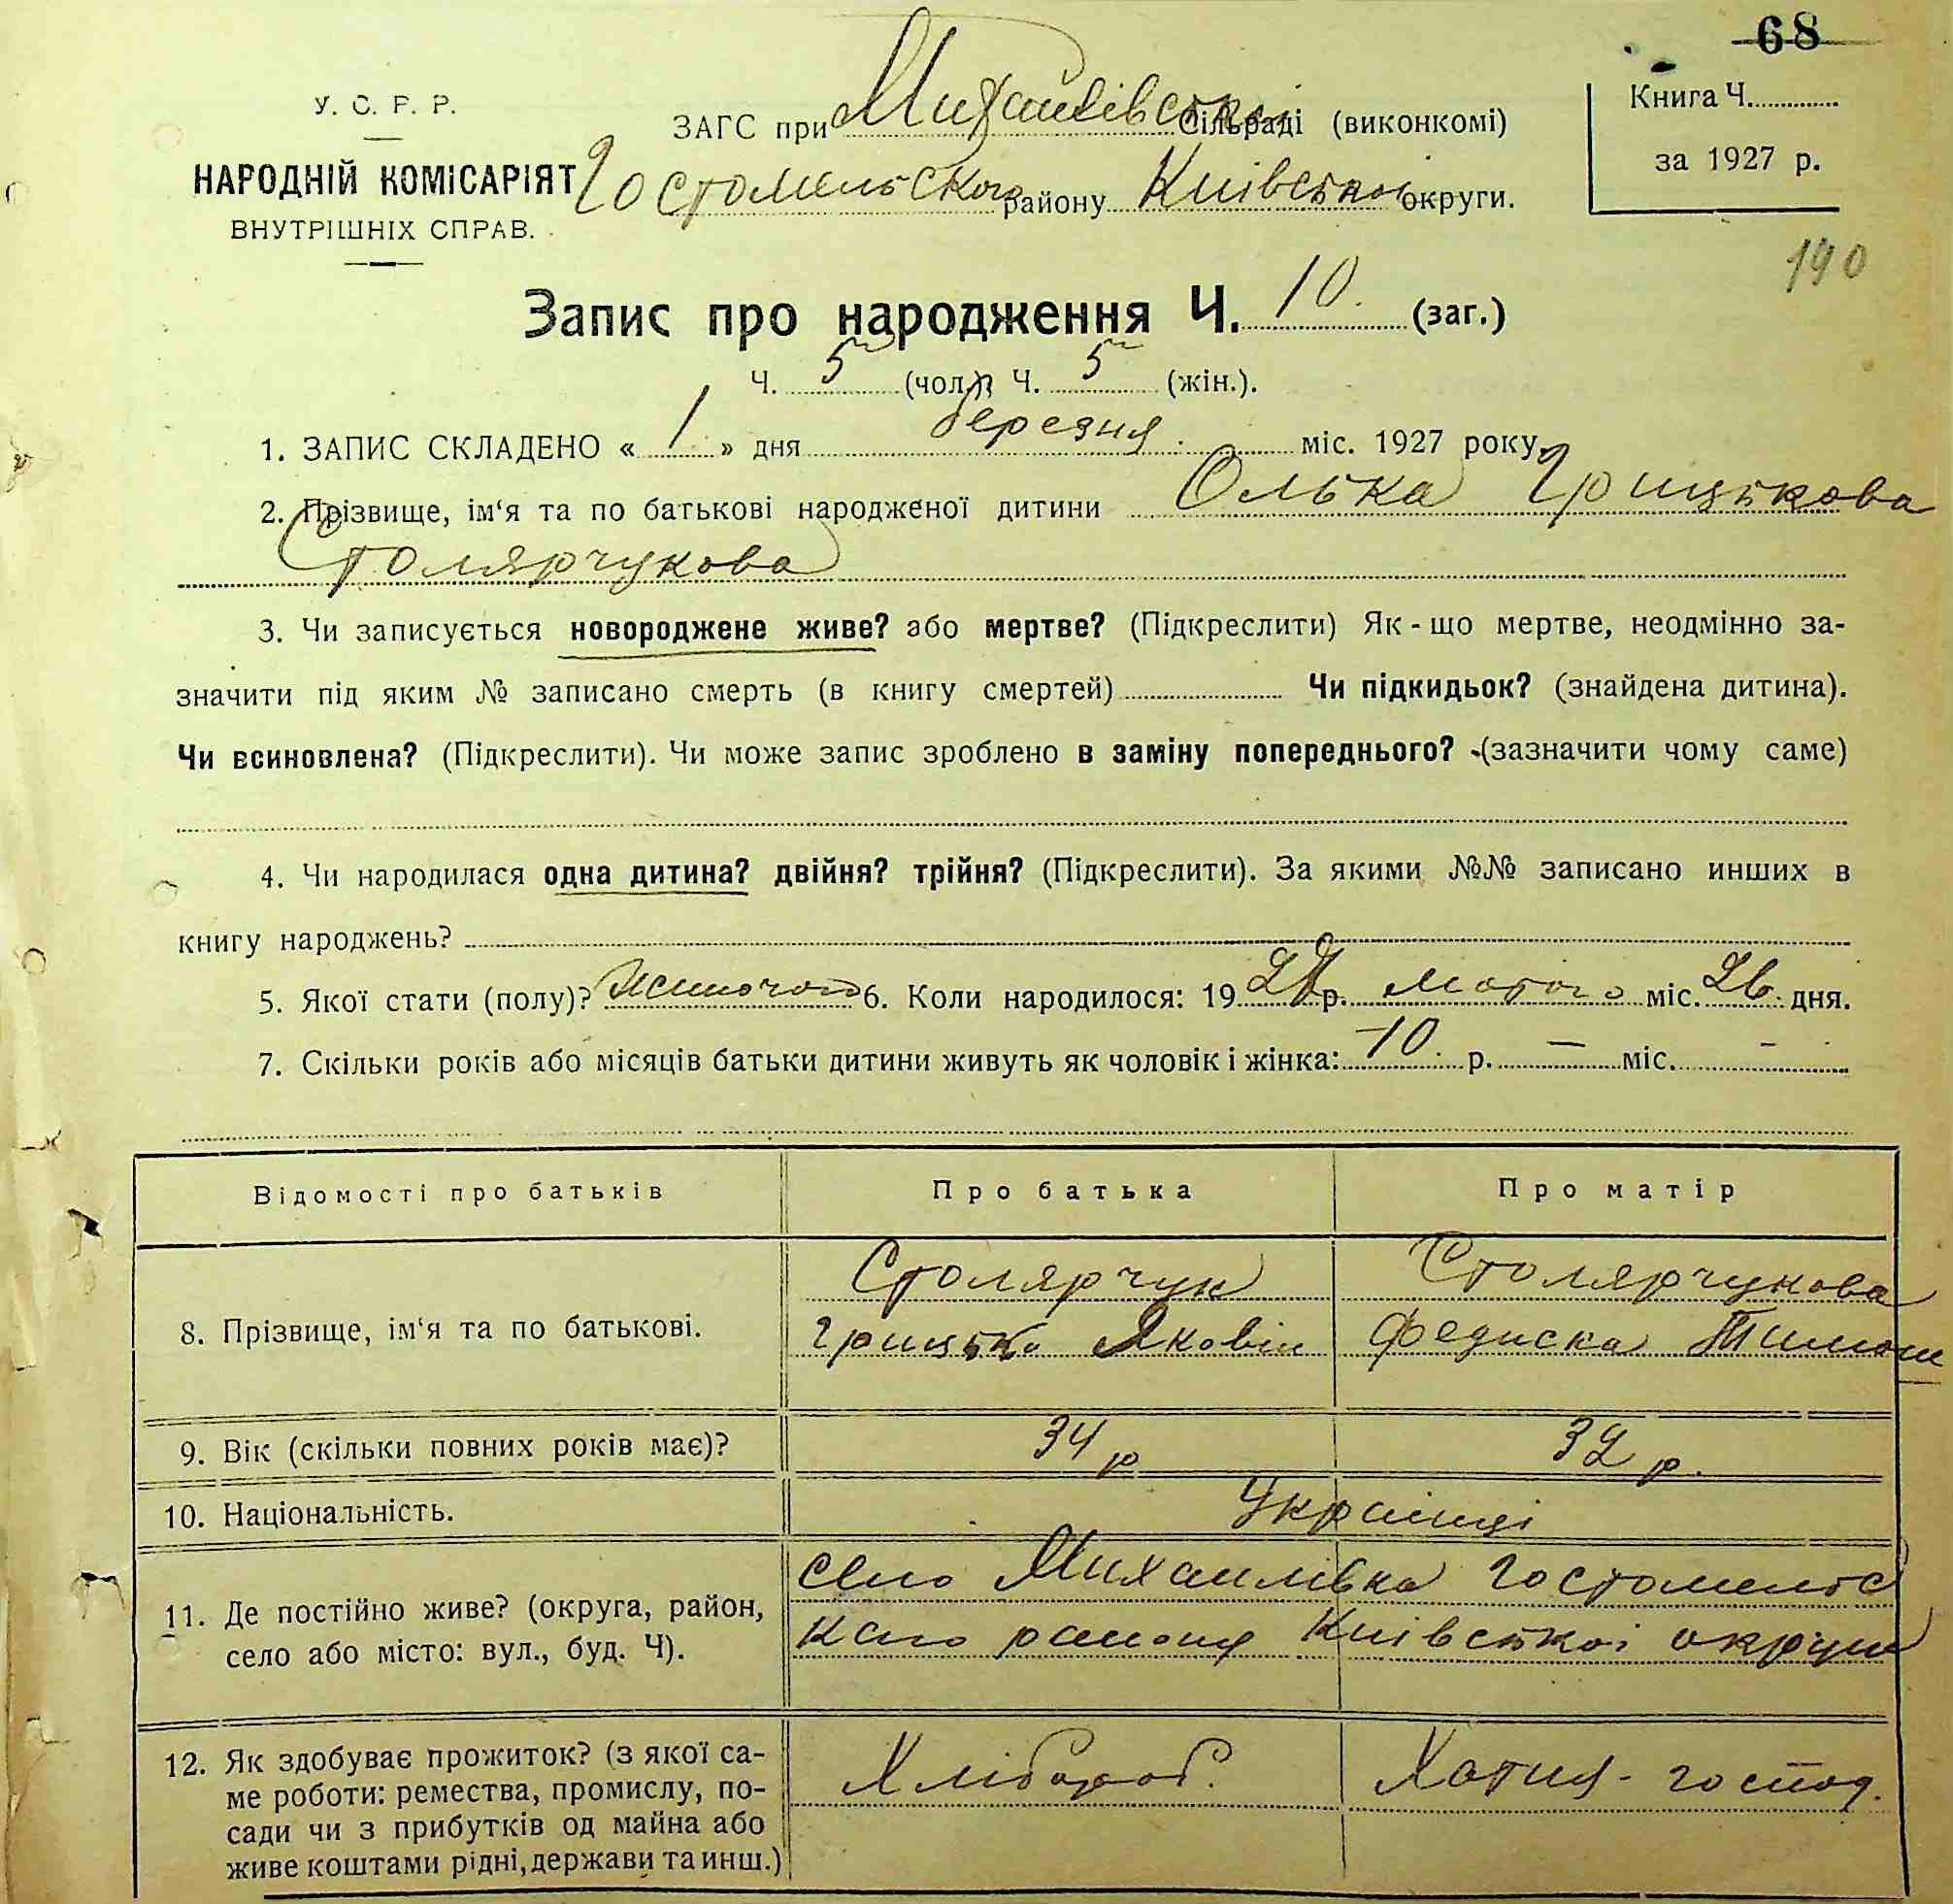 68
У. С. Р. Р.
НАРОДНІЙ КОМІСАРІЯТ
ВНУТРІШНІХ СПРАВ.
ЗАГС при Михайлівській Сільраді (виконкомі)
Гостомельського району Київської округи.
Книга Ч.
за 1927 р.
190
Запис про народження Ч. 10. (заг.)
Ч. 5 (чол.) Ч. 5 (жін.).
1. ЗАПИС СКЛАДЕНО « 1 » дня березня міс. 1927 року
2. Прізвище, ім‘я та по батькові народженої дитини Олька Грицькова
Столярчукова
3. Чи записується новороджене живе? або мертве? (Підкреслити) Як-що мертве, неодмінно за-
значити під яким № записано смерть (в книгу смертей) Чи підкидьок? (знайдена дитина).
Чи всиновлена? (Підкреслити). Чи може запис зроблено в заміну попереднього? (зазначити чому саме)
4. Чи народилася одна дитина? двійня? трійня? (Підкреслити). За якими №№ записано инших в
книгу народжень?
5. Якої стати (полу)? Жиночого 6. Коли народилося: 1927 р. Лютого міс. 26. дня.
7. Скільки років або місяців батьки дитини живуть як чоловік і жінка: 10. р. — міс. -
Відомості про батьків Про батька Про матір
8. Прізвище, ім‘я та по батькові.
Столярчук Столярчукова
Грицько Яковів Федиска Тимош
9. Вік (скільки повних років має)? 34 р 32 р.
10. Національність. Українці
11. Де постійно живе? (округа, район,
село або місто: вул., буд. Ч).
село Михайлівка Гостомельс
кого району Київської округи
12. Як здобуває прожиток? (з якої са-
ме роботи: ремества, промислу, по-
сади чи з прибутків од майна або
живе коштами рідні, держави та инш.)
Хлібороб. Хатня-господ.